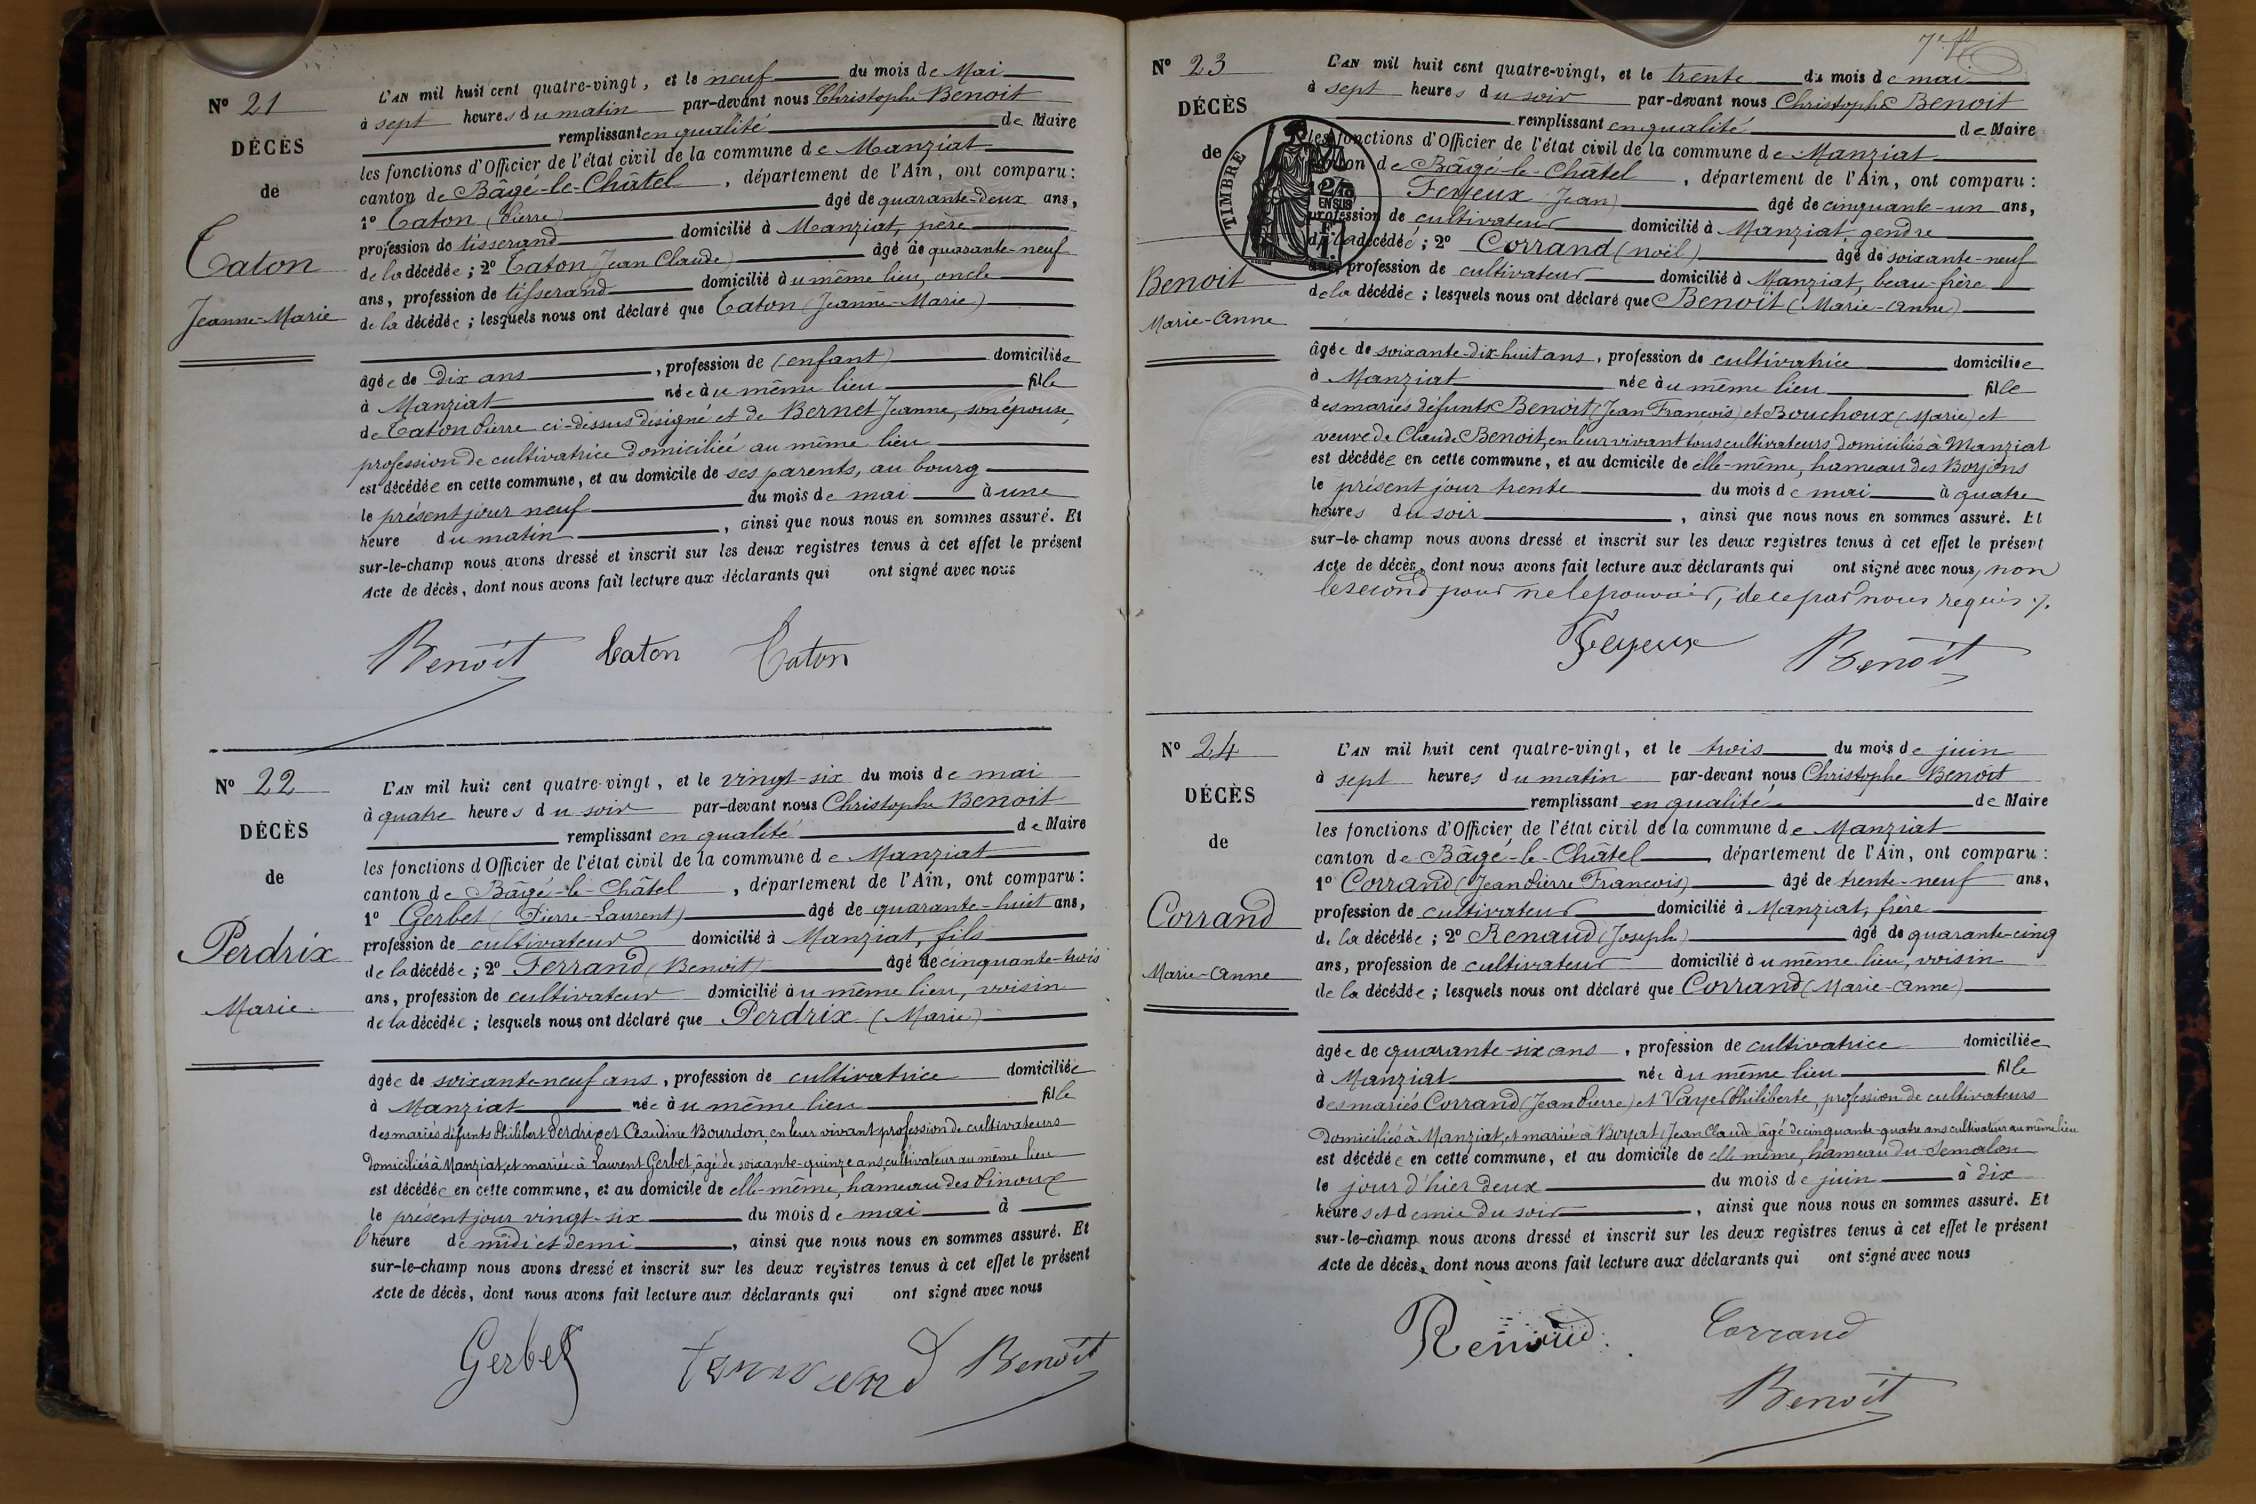 N° 21
DÉCÈS
de
Caton
Jeanne-Marie
L'AN mil huit cent quatre-vingt, et le neuf du mois de Mai
à sept heures du matin par-devant nous Christophe Benoit
remplissant en qualité de Maire
les fonctions d'Officier de l'état civil de la commune de Manziat
canton de Bâgé-le-Châtel, département de l'Ain, ont comparu :
1° Caton (Pierre) âgé de quarante-deux ans,
profession de tisserand domicilié à Manziat, père
de la décédée ; 2° Caton Jean Claude) âgé de quarante-neuf
ans, profession de tisserand domicilié àu même lieu, oncle
de la décédée ; lesquels nous ont déclaré que Caton (Jeanne-Marie)
âgée de Dix ans, profession de (enfant) domiciliée
à Manziat née àu même lieu fille
de Caton Pierre ci-dessus désigné et de Bernet Jeanne, son épouse,
profession de cultivatrice domiciliée au même lieu
est décédée en cette commune, et au domicile de ses parents, au bourg
le présent jour neuf du mois de mai à une
heure du matin, ainsi que nous nous en sommes assuré. Et
sur-le-champ nous avons dressé et inscrit sur les deux registres tenus à cet effet le présent
Acte de décès, dont nous avons fait lecture aux déclarants qui ont signé avec nous
Benoit Caton Caton
N° 22
DÉCÈS
de
Perdrix
Marie
L'AN mil huit cent quatre-vingt, et le vingt-six du mois de mai
à quatre heures du soir par-devant nous Christophe Benoit
remplissant en qualité de Maire
les fonctions d'Officier de l'état civil de la commune de Manziat
canton de Bâgé-le-Châtel, département de l'Ain, ont comparu :
1° Gerbet (Pierre-Laurent) âgé de quarante-huit ans,
profession de cultivateur domicilié à Manziat, fils
de la décédée ; 2° Ferrand (Benoit) âgé de cinquante-trois
ans, profession de cultivateur domicilié àu même lieu, voisin
de la décédée ; lesquels nous ont déclaré que Perdrix (Marie)
âgée de soixante-neuf ans, profession de cultivatrice domiciliée
à Manziat née àu même lieu fille
des mariés défunts Philibert Perdrix et Claudine Bourdon, en leur vivant profession de cultivateurs
domiciliés à Manziat, et mariée à Laurent Gerbet, âgé de soixante-quinze ans cultivateur au même lieu
est décédée en cette commune, et au domicile de elle-même, hameau des Pinoux
le présent jour vingt-six du mois de mai à
heure de midi et demi, ainsi que nous nous en sommes assuré. Et
sur-le-champ nous avons dressé et inscrit sur les deux registres tenus à cet effet le présent
Acte de décès, dont nous avons fait lecture aux déclarants qui ont signé avec nous
Gerbet ferrand Benoit
N° 23
DÉCÈS
de
Benoit
Marie-Anne
TIMBRE
2/10
EN SUS
7e
L'AN mil huit cent quatre-vingt, et le trente du mois de mai
à sept heures du soir par-devant nous Christophe Benoit
remplissant en qualité de Maire
les fonctions d'Officier de l'état civil de la commune de Manziat
canton de Bâgé-le-Châtel, département de l'Ain, ont comparu :
Feyeux Jean) âgé de cinquante-un ans,
profession de cultivateur domicilié à Manziat, gendre
de la décédée ; 2° Corrand (noël) âgé de soixante-neuf
ans, profession de cultivateur domicilié à Manziat, beau-frère
de la décédée ; lesquels nous ont déclaré que Benoit (Marie-Anne)
âgée de soixante-dix-huit ans, profession de cultivatrice domiciliée
à Manziat née àu même lieu fille
des mariés défunts Benoit (Jean François) et Bouchoux (Marie) et
veuve de Claude Benoit, en leur vivant tous cultivateurs domiciliés à Manziat
est décédée en cette commune, et au domicile de elle-même, hameau des Boyons
le présent jour trente du mois de mai à quatre
heures du soir, ainsi que nous nous en sommes assuré. Et
sur-le-champ nous avons dressé et inscrit sur les deux registres tenus à cet effet le présent
Acte de décès, dont nous avons fait lecture aux déclarants qui ont signé avec nous, non
le second pour ne le pouvoir, de ce par nous requis ./.
Feyeux Benoit
N° 24
DÉCÈS
de
Corrand
Marie-Anne
L'AN mil huit cent quatre-vingt, et le trois du mois de juin
à sept heures du matin par-devant nous Christophe Benoit
remplissant en qualité de Maire
les fonctions d'Officier de l'état civil de la commune de Manziat
canton de Bâgé-le-Châtel, département de l'Ain, ont comparu :
1° Corrand (Jean Pierre François) âgé de trente-neuf ans,
profession de cultivateur domicilié à Manziat, frère
de la décédée ; 2° Renaud (Joseph) âgé de quarante-cinq
ans, profession de cultivateur domicilié àu même lieu, voisin
de la décédée ; lesquels nous ont déclaré que Corrand (Marie-Anne)
âgée de quarante-six ans, profession de cultivatrice domiciliée
à Manziat née àu même lieu fille
des mariés Corrand (Jean Pierre) et Vayer Philiberte, profession de cultivateurs
domiciliés à Manziat, et mariée à Boyat (Jean Claude) âgé de cinquante-quatre ans cultivateur au même lieu
est décédée en cette commune, et au domicile de elle même, hameau du Semalon
le jour d'hier deux du mois de juin à dix
heures et demie du soir, ainsi que nous nous en sommes assuré. Et
sur-le-champ nous avons dressé et inscrit sur les deux registres tenus à cet effet le présent
Acte de décès, dont nous avons fait lecture aux déclarants qui ont signé avec nous
Renaud Corrand
Benoit